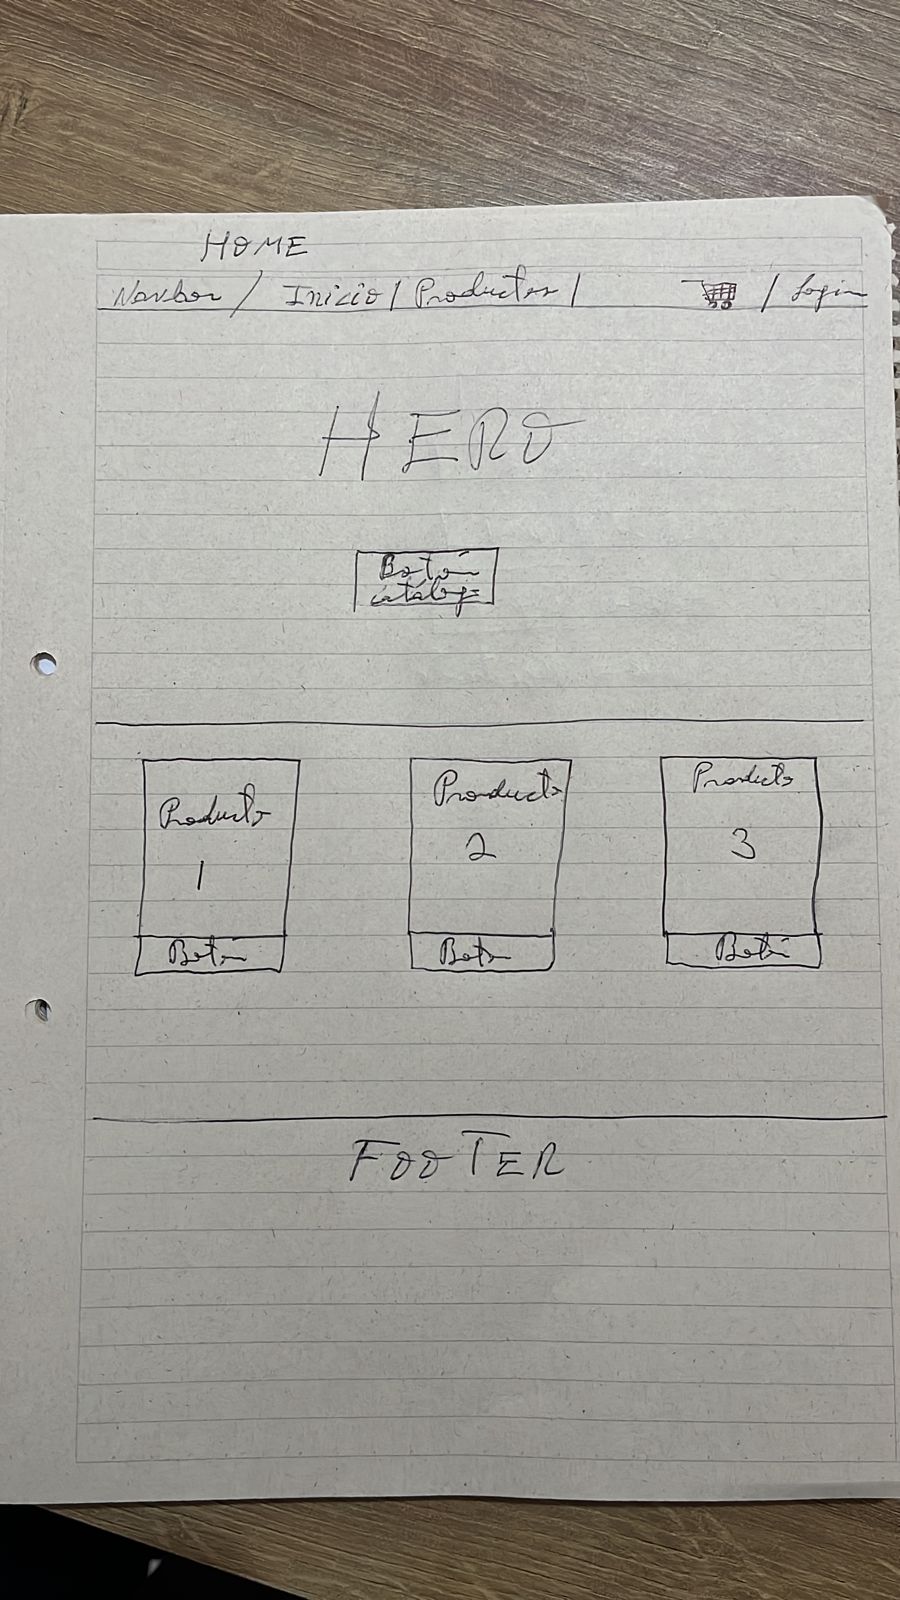 HOME
Navbar / Inicio | Productos | / Login
HERO
Botón
catálogo
Producto Producto Producto
1 2 3
Botón Botón Botón
FOOTER